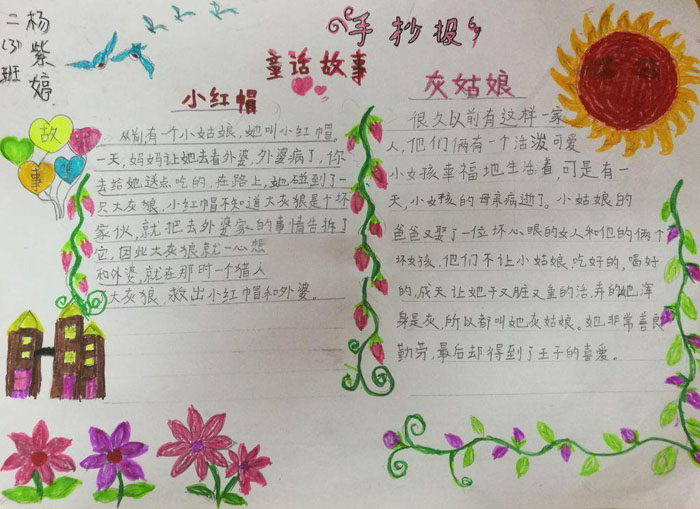 二(3)班
杨紫婷
手抄报
童话故事
故
事
小红帽
从前,有一个小姑娘,她叫小红帽。
一天,妈妈让她去看外婆,外婆病了,你
去给她送点吃的,在路上,她碰到了一
只大灰狼,小红帽不知道大灰狼是个坏
家伙,就把去外婆家的事情告拆了
它,因此大灰狼就一心想
和外婆,就在那时一个猎人
大灰狼,救出小红帽和外婆。
灰姑娘
很久以前有这样一家
人,他们俩有一个活泼可爱
小女孩幸福地生活着,可是有一
天,小女孩的母亲病逝了。小姑娘的
爸爸又娶了一位坏心眼的女人和他的俩个
坏女孩,他们不让小姑娘,吃好的,喝好
的,成天让她干又脏又重的活,弄的她,浑
身是灰,所以都叫她灰姑娘。她非常善良
勤劳,最后却得到了王子的喜爱。